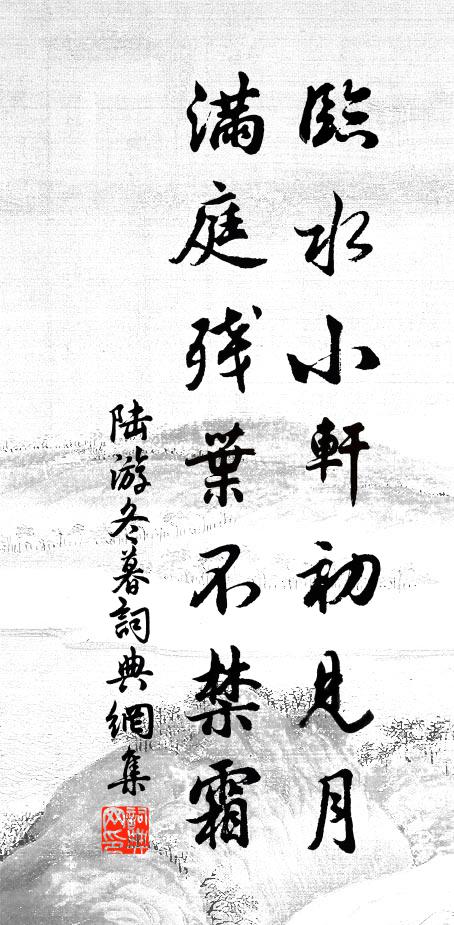 臨水小軒初見月
滿庭殘葉不禁霜
陸游冬暮詞典網集
詞典網印